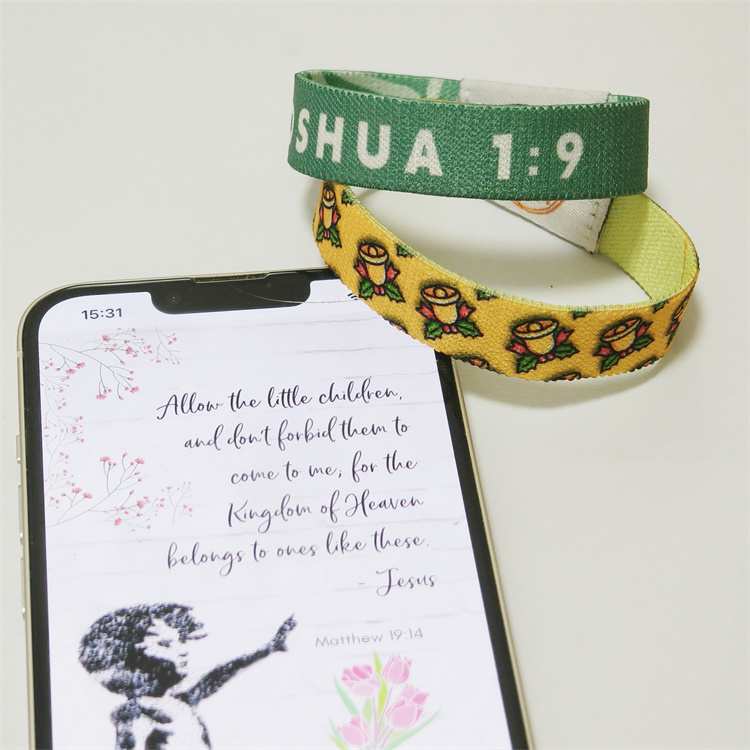 OSHUA 1:9
15:31
Allow the little children,
and don't forbid them to
come to me; for the
Kingdom of Heaven
belongs to ones like these.
- Jesus
Matthew 19:14